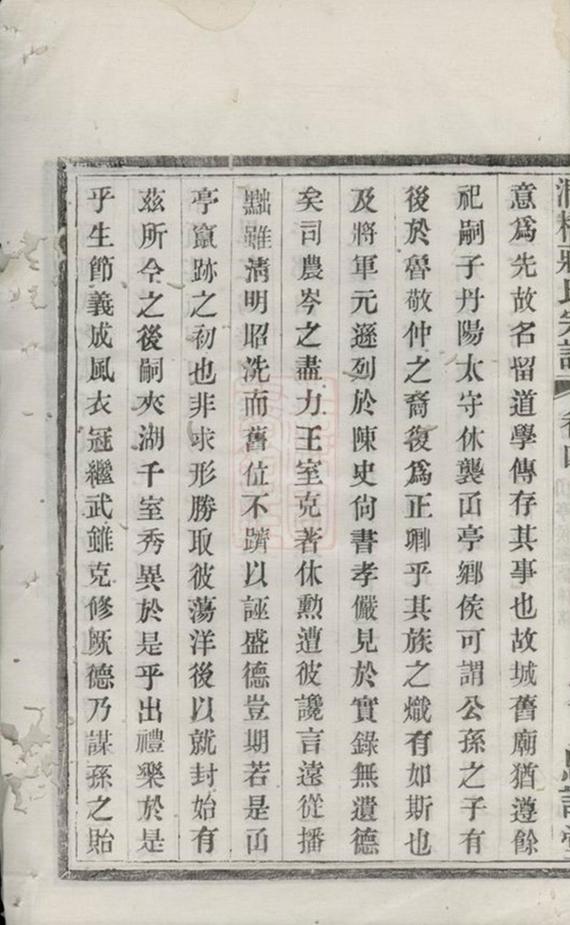 氏宗譜 卷四
意爲先故名留道學傳存其事也故城舊廟猶遵餘
祀嗣子丹陽太守休襲㓊亭鄕侯可謂公孫之子有
後於魯敬仲之裔復爲正卿乎其族之熾有如斯也
及將軍元遜列於陳史尙書孝儼見於實錄無遺德
矣司農岑之盡力王室克著休勲遭彼讒言遠從播
黜雖淸明昭洗而舊位不躋以誣盛德豈期若是㓊
亭竄跡之初也非求形勝取彼蕩洋後以就封始有
茲所令之後嗣夾湖千室秀異於是乎出禮樂於是
乎生節義成風衣冠繼武雖克修厥德乃謀孫之貽